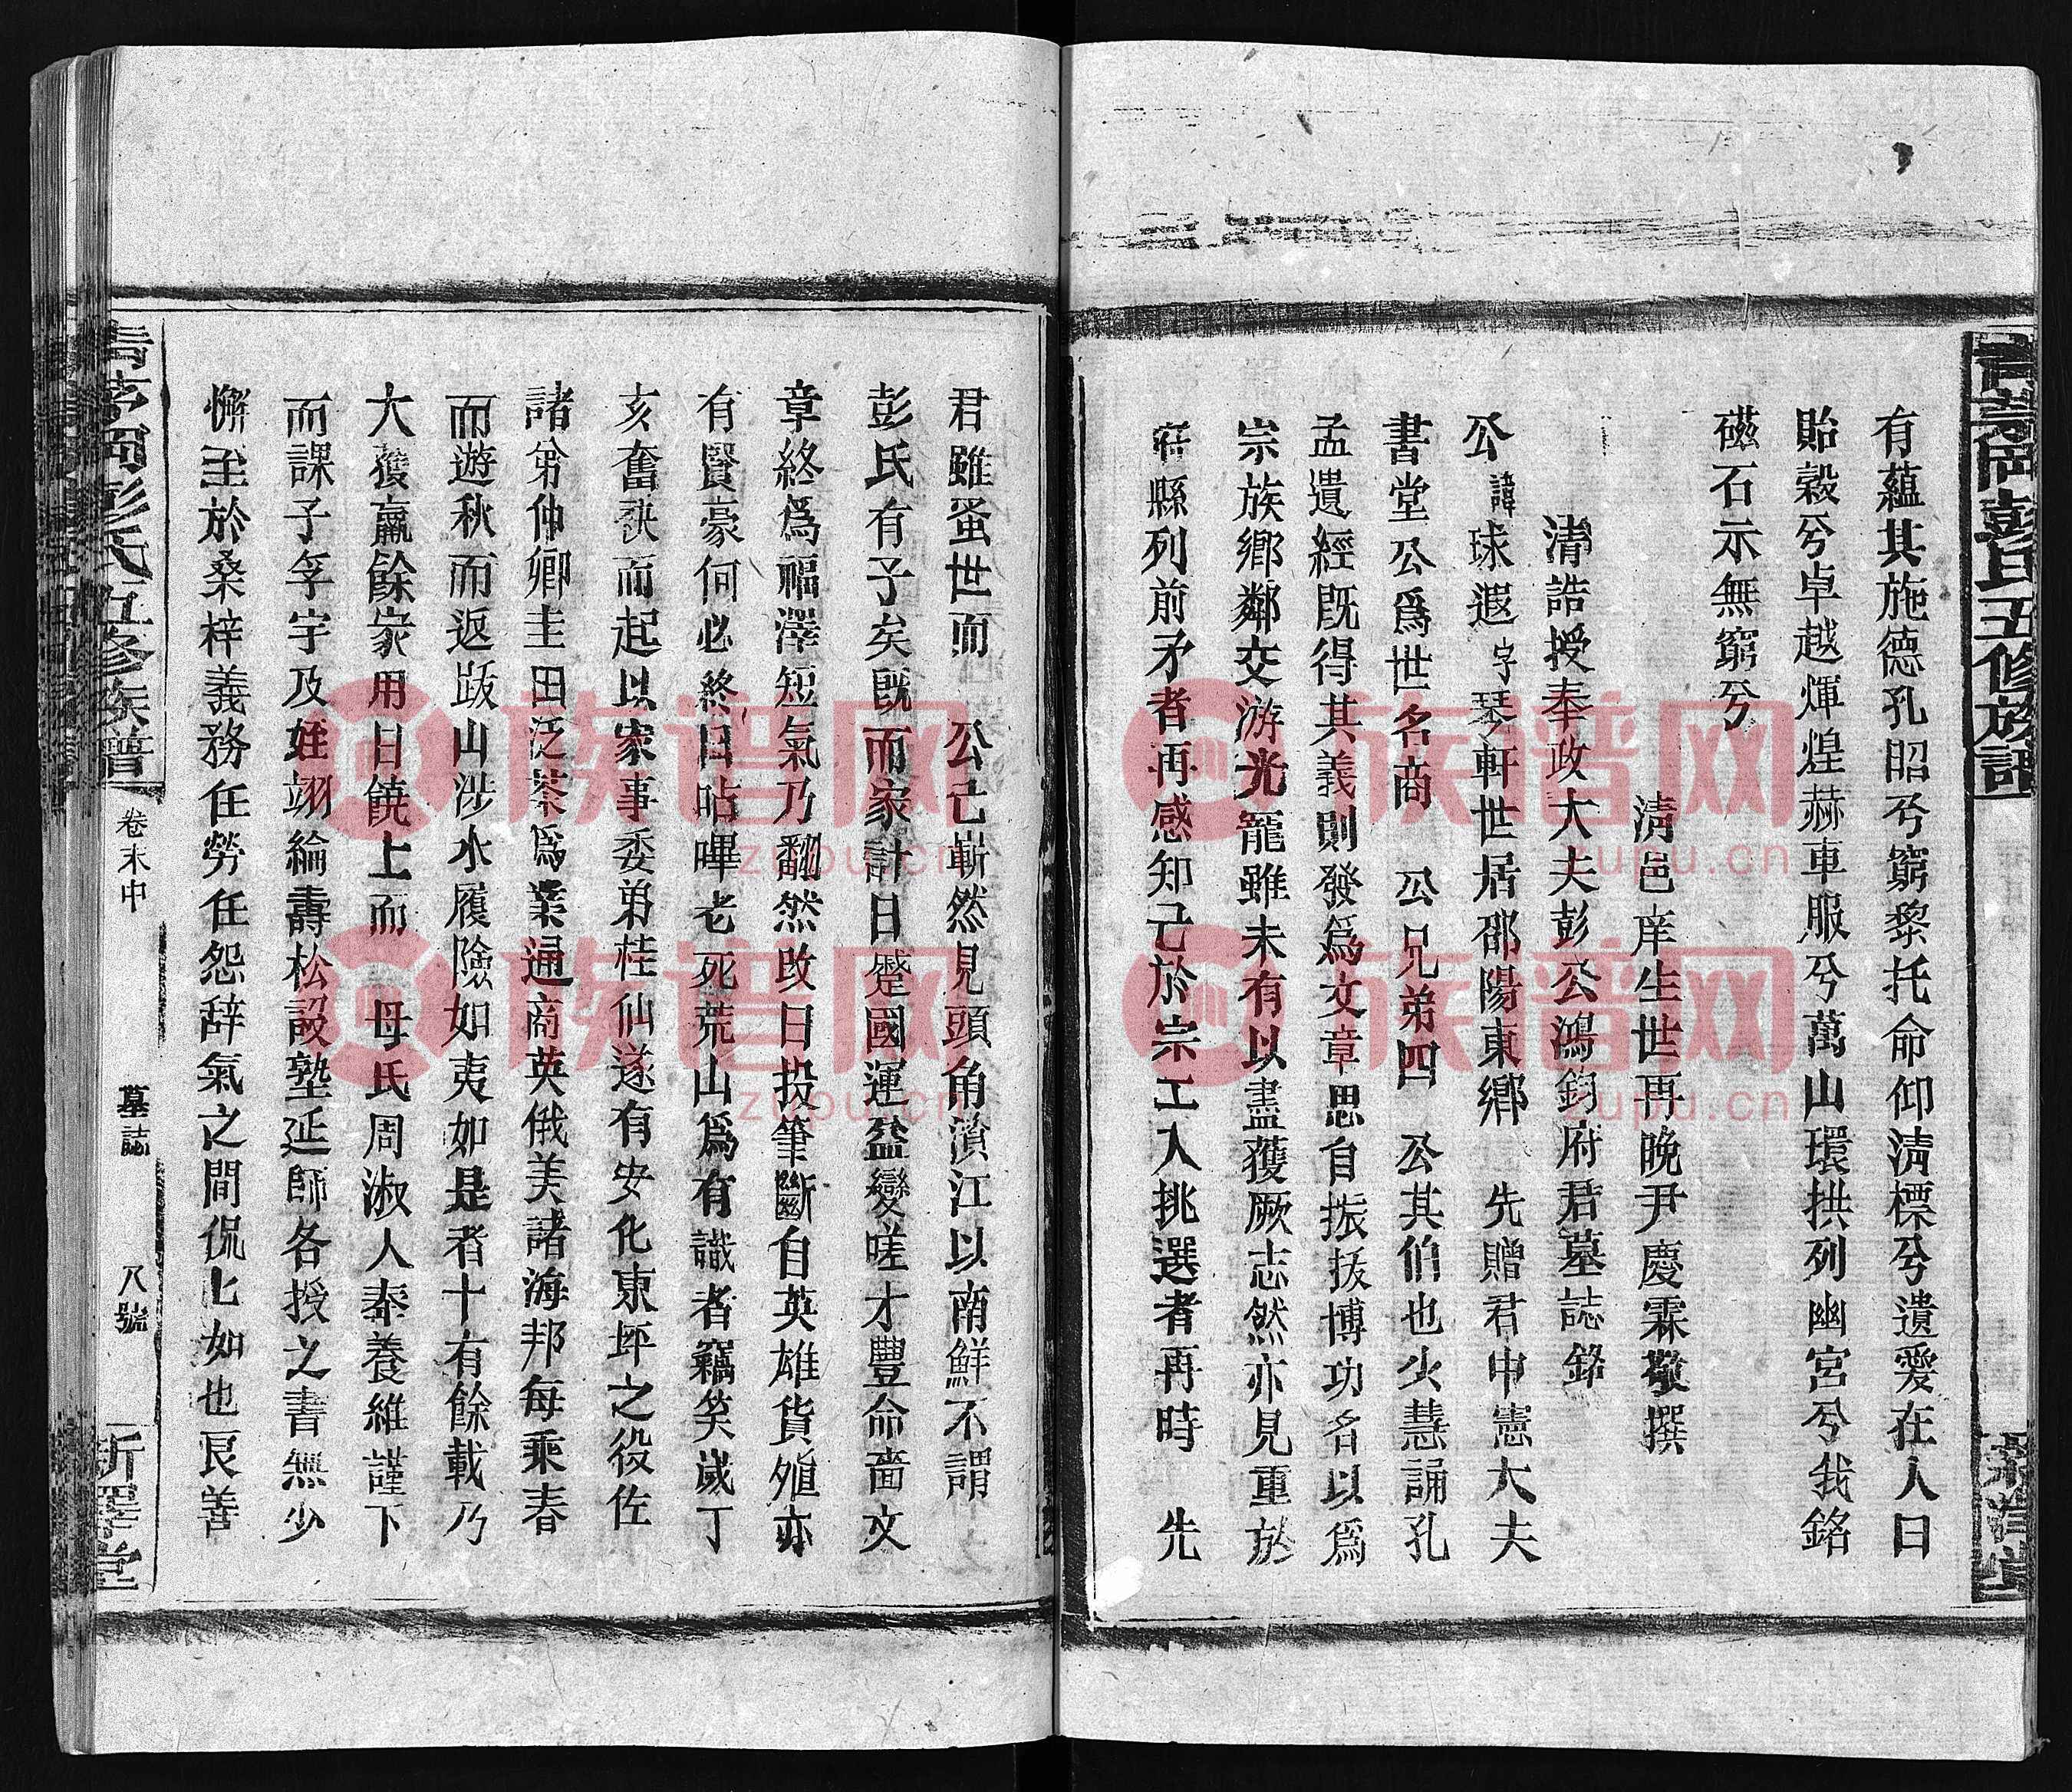 有蘊其施德孔昭兮窮黎托命仰清標兮遺愛在人曰
貽穀兮卓越煇煌赫車服兮萬山環拱列幽宮兮我銘
磁石示無窮兮
清邑庠生世再晚尹慶霖敬撰
清誥授奉政大夫彭公鴻鈞府君墓誌銘
公諱球遐字琴軒世居邵陽東鄉 先贈君中憲大夫
書堂公爲世名商 公兄弟四 公其伯也少慧誦孔
孟遺經既得其義則發爲文章思自振拔博功名以爲
宗族鄉鄰交游光寵雖未有以盡獲厥志然亦見重於
縣列前矛者再感知己於宗工入挑選者再時 先
君雖蚤世而 公已嶄然見頭角濱江以南鮮不謂
彭氏有子矣既而家計日蹙國運益變嗟才豐命嗇文
章終爲福澤短氣乃翻然改曰投筆斷自英雄貨殖亦
有賢豪何必終日呫嗶老死荒山爲有識者竊笑歲丁
亥奮袂而起以家事委弟桂仙遂有安化東坪之役佐
諸弟仲卿圭田泛茶爲業通商英俄美諸海邦每乘春
而遊秋而返跋山涉水履險如夷如是者十有餘載乃
大獲贏餘家用日饒上而 母氏周淑人奉養維謹下
而課子孚宇及姪翊綸壽松設塾延師各授之書無少
懈至於桑梓義務任勞任怨辭氣之間侃匕如也良善
彭氏五修族譜
卷末中
墓誌
八號
彭氏五修族譜